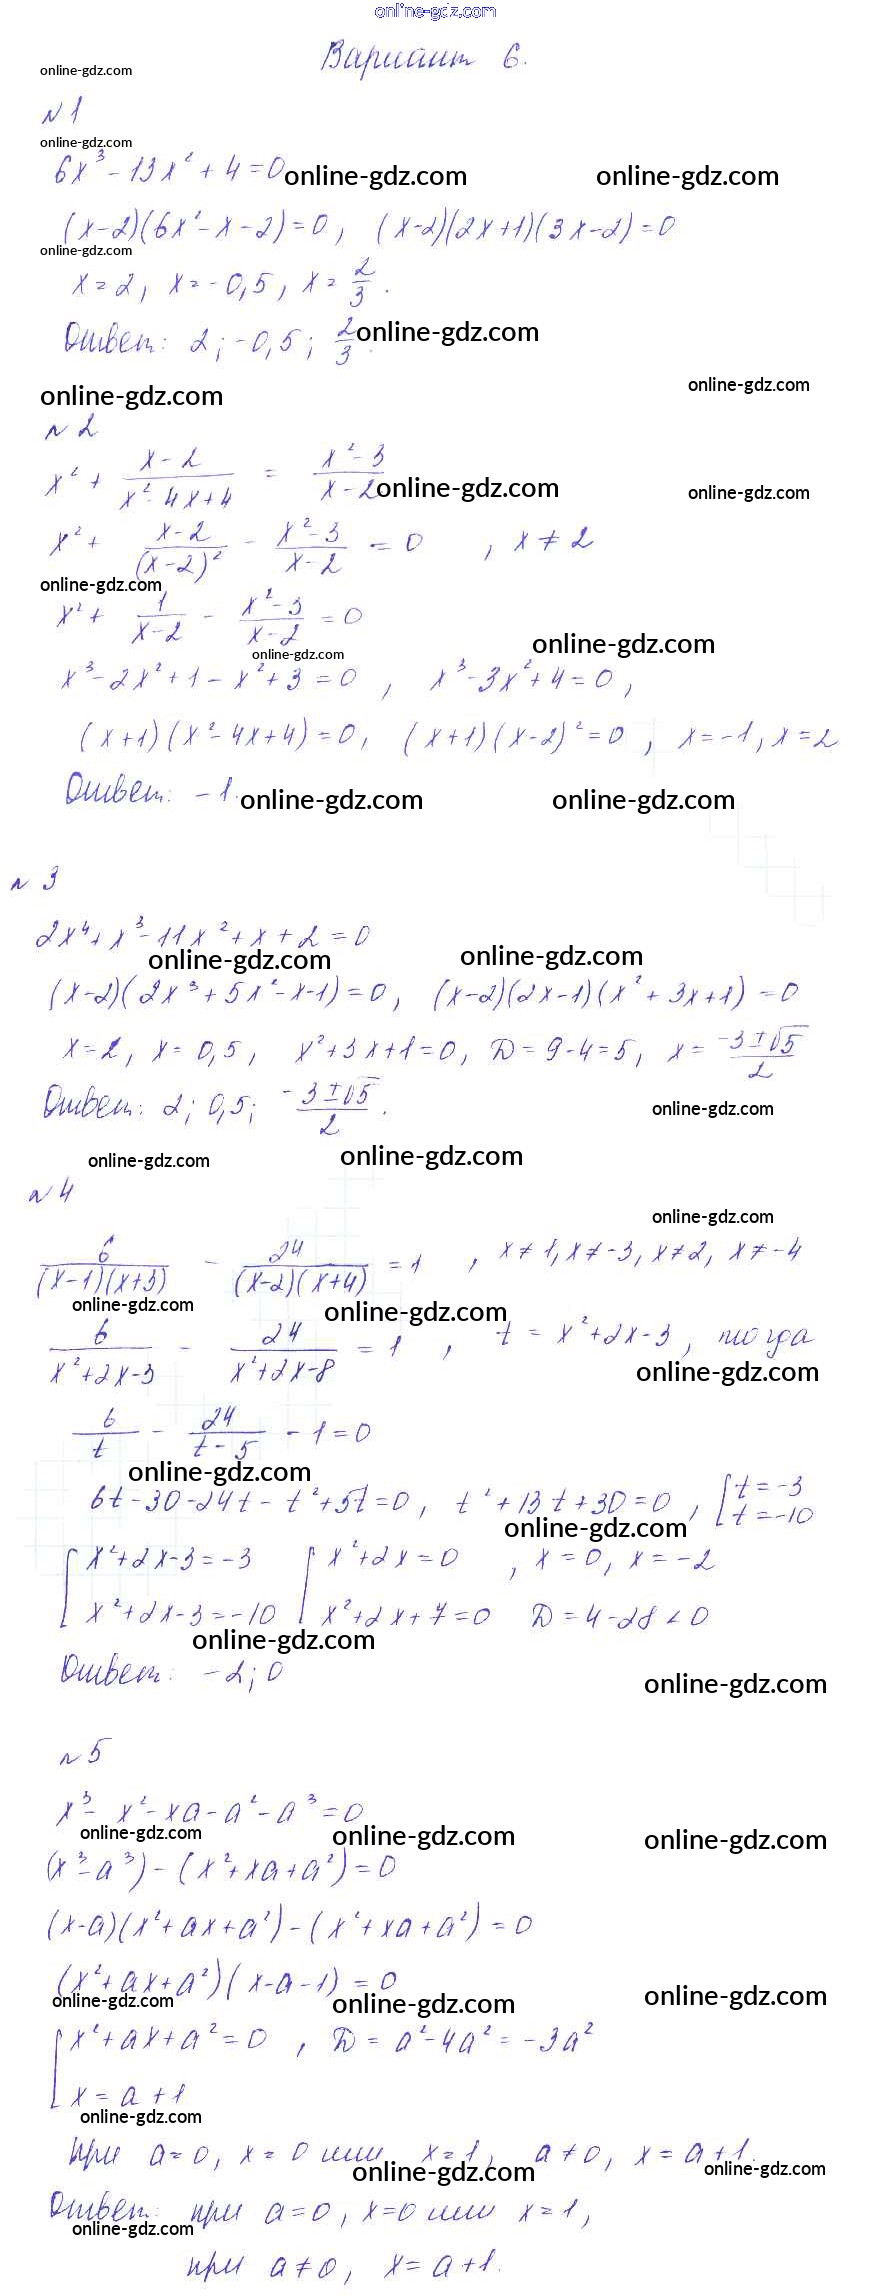 online-gdz.com
Вариант 6.
online-gdz.com
№1
online-gdz.com
6x³-13x²+4=0 online-gdz.com online-gdz.com
(x-2)(6x²-x-2)=0, (x-2)(2x+1)(3x-2)=0
online-gdz.com
x=2, x=-0,5, x=2/3.
Ответ: 2; -0,5; 2/3. online-gdz.com
online-gdz.com online-gdz.com
№2
x² + (x-2)/(x²-4x+4) = (x²-3)/(x-2) online-gdz.com online-gdz.com
x² + (x-2)/(x-2)² - (x²-3)/(x-2) = 0, x≠2
online-gdz.com
x² + 1/(x-2) - (x²-3)/(x-2) = 0
online-gdz.com online-gdz.com
x³-2x²+1-x²+3=0, x³-3x²+4=0,
(x+1)(x²-4x+4)=0, (x+1)(x-2)²=0, x=-1, x=2
Ответ: -1. online-gdz.com online-gdz.com
№3
2x⁴+x³-11x²+x+2=0
online-gdz.com online-gdz.com
(x-2)(2x³+5x²-x-1)=0, (x-2)(2x-1)(x²+3x+1)=0
x=2, x=0,5, x²+3x+1=0, D=9-4=5, x=(-3±√5)/2
Ответ: 2; 0,5; (-3±√5)/2. online-gdz.com
online-gdz.com online-gdz.com
№4
online-gdz.com
6/((x-1)(x+3)) - 24/((x-2)(x+4)) = 1, x≠1, x≠-3, x≠2, x≠-4
online-gdz.com online-gdz.com
6/(x²+2x-3) - 24/(x²+2x-8) = 1, t = x²+2x-3, тогда
online-gdz.com
6/t - 24/(t-5) - 1 = 0
online-gdz.com
6t-30-24t-t²+5t=0, t²+13t+30=0, [t=-3
t=-10
online-gdz.com
[x²+2x-3=-3 [x²+2x=0, x=0, x=-2
x²+2x-3=-10 x²+2x+7=0 D=4-28<0
online-gdz.com
Ответ: -2; 0 online-gdz.com
№5
x³-x²-xa-a²-a³=0
online-gdz.com online-gdz.com online-gdz.com
(x³-a³)-(x²+xa+a²)=0
(x-a)(x²+ax+a²)-(x²+xa+a²)=0
(x²+ax+a²)(x-a-1)=0
online-gdz.com online-gdz.com online-gdz.com
[x²+ax+a²=0, D=a²-4a²=-3a²
x=a+1
online-gdz.com
При a=0, x=0 или x=1, a≠0, x=a+1.
online-gdz.com online-gdz.com
Ответ: при a=0, x=0 или x=1,
online-gdz.com
при a≠0, x=a+1.